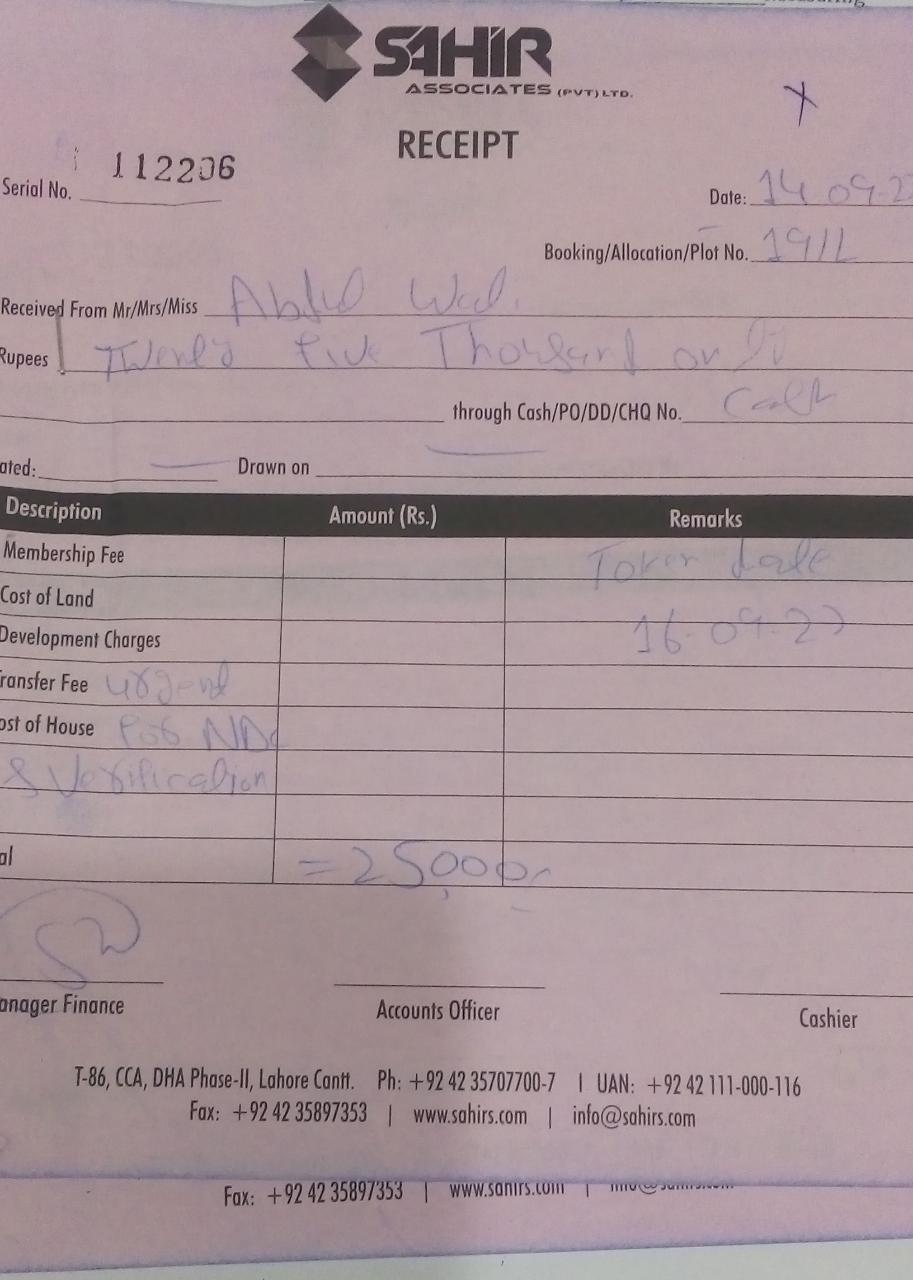 SAHIR
ASSOCIATES (PVT) LTD.
RECEIPT
Serial No. 112206
Date: 14 09-2
Booking/Allocation/Plot No. 191L
Received From Mr/Mrs/Miss Abdul
Rupees Twenty Five Thousand only
through Cash/PO/DD/CHQ No. Cash
ated: Drawn on
Description Amount (Rs.) Remarks
Membership Fee Token date
Cost of Land
Development Charges 16-09-22
ransfer Fee urgent
ost of House For NDC
& Verification
al =25,000
anager Finance Accounts Officer Cashier
T-86, CCA, DHA Phase-II, Lahore Cantt. Ph: +92 42 35707700-7 | UAN: +92 42 111-000-116
Fax: +92 42 35897353 | www.sahirs.com | info@sahirs.com
Fax: +92 42 35897353 | www.sahirs.com |